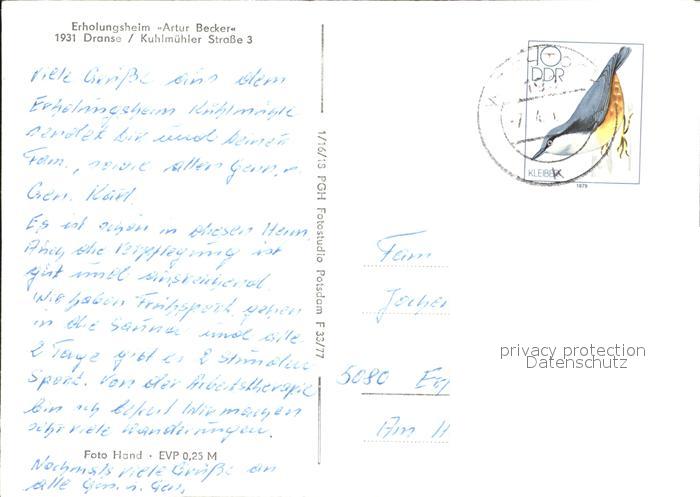 Erholungsheim »Artur Becker«
1931 Dranse / Kuhlmühler Straße 3
Viele Grüße aus dem
Erholungsheim Kuhlmühle
sendet dir und deiner
Fam., sowie allen Genn. u.
Gen. Karl.
Es ist schön in diesen Heim
Auch die Verpflegung ist
gut und ausreichend.
Wir haben Frühsport, gehen
in die Sauna und alle
2 Tage gibt es 2 Stunden
Sport. Von der Arbeitstherapie
bin ich befreit Wir machen
sehr viele Wanderungen.
Foto Hand · EVP 0,25 M
Nochmals viele Grüße an
alle Gen. u. Gen.
1/16/13 PGH Fotostudio Potsdam F 33/77
10
DDR
KLEIBER
1979
Fam
Jochen
5080 Erf
Am H
privacy protection
Datenschutz